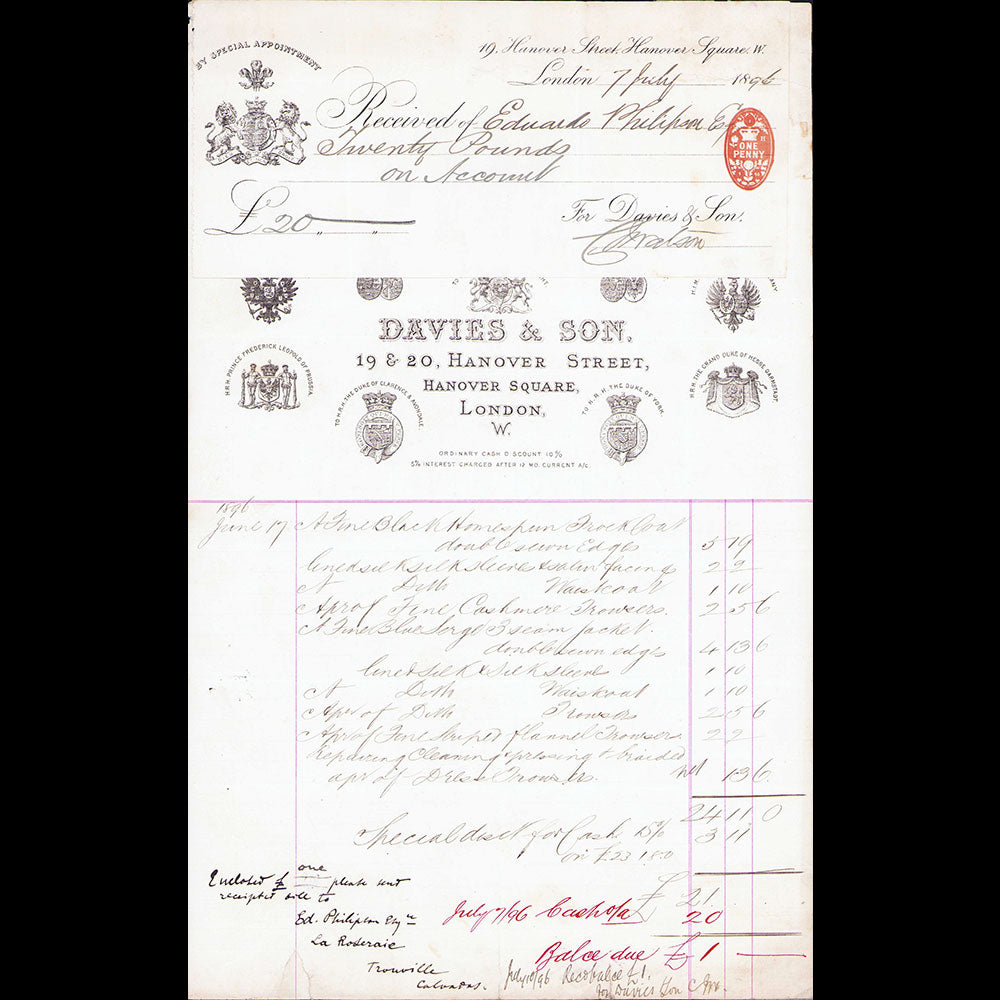 BY SPECIAL APPOINTMENT
19, Hanover Street, Hanover Square, W.
London 7 July 1896
Received of Eduardo Philipson Esq
Twenty Pounds
on Account
ONE PENNY
£20 " "
For Davies & Son.
C Watson
DAVIES & SON.
19 & 20, HANOVER STREET,
HANOVER SQUARE,
LONDON,
W.
H.R.H. PRINCE FREDERICK LEOPOLD OF PRUSSIA
TO H.R.H. THE DUKE OF CLARENCE & AVONDALE.
TO H.R.H. THE DUKE OF YORK.
H.R.H. THE GRAND DUKE OF HESSE DARMSTADT
ORDINARY CASH DISCOUNT 10%
5% INTEREST CHARGED AFTER 12 MO. CURRENT A/C.
1896
June 17 A Fine Black Homespun Frock Coat
double sewn Edges 5 19
lined silk silk sleeves & satin facings 2 2
A Ditto Waistcoat 1 10
A pr of Fine Cashmere Trowsers. 2 5 6
A Fine Blue Serge 3 seam jacket.
double sewn edges 4 13 6
lined silk & silk sleeves 1 10
A Ditto Waistcoat 1 10
A pr of Ditto Trowsers 2 5 6
A pr of Fine striped flannel Trowsers 2 2
Repairing Cleaning & pressing & braided
a pr of Dress Trowsers. net 13 6
24 11 0
Special disct for Cash 15% 3 11
on £23.18.0
£ 21
Enclosed £ one please send
receipted bill to
Ed. Philipson Esqre
La Roseraie
Trouville
Calvados.
July 7/96 Cash o/a 20
Balce due £ 1
July 10/96 Recd balce £1.
for Davies & Son